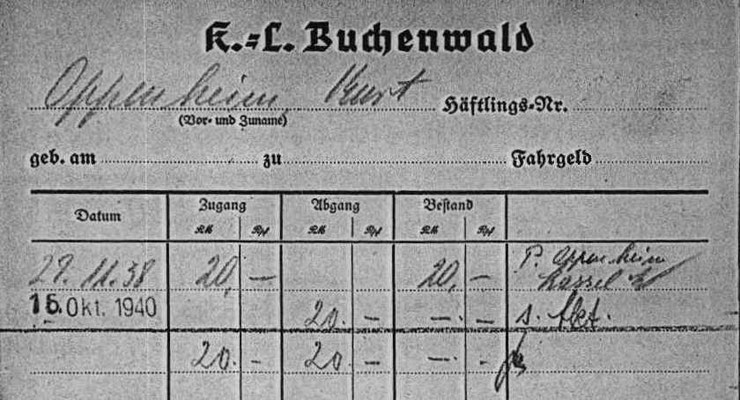 K.=L. Buchenwald
Oppenheim, Kurt Häftlings=Nr.
(Vor= und Zuname)
geb. am zu Fahrgeld
Datum Zugang Abgang Bestand
RM Rpf RM Rpf RM Rpf
27. 11. 38 20,- 20,- P. Oppenheim
Kassel
15. Okt. 1940 20.- -.-
20.- 20.- -.-